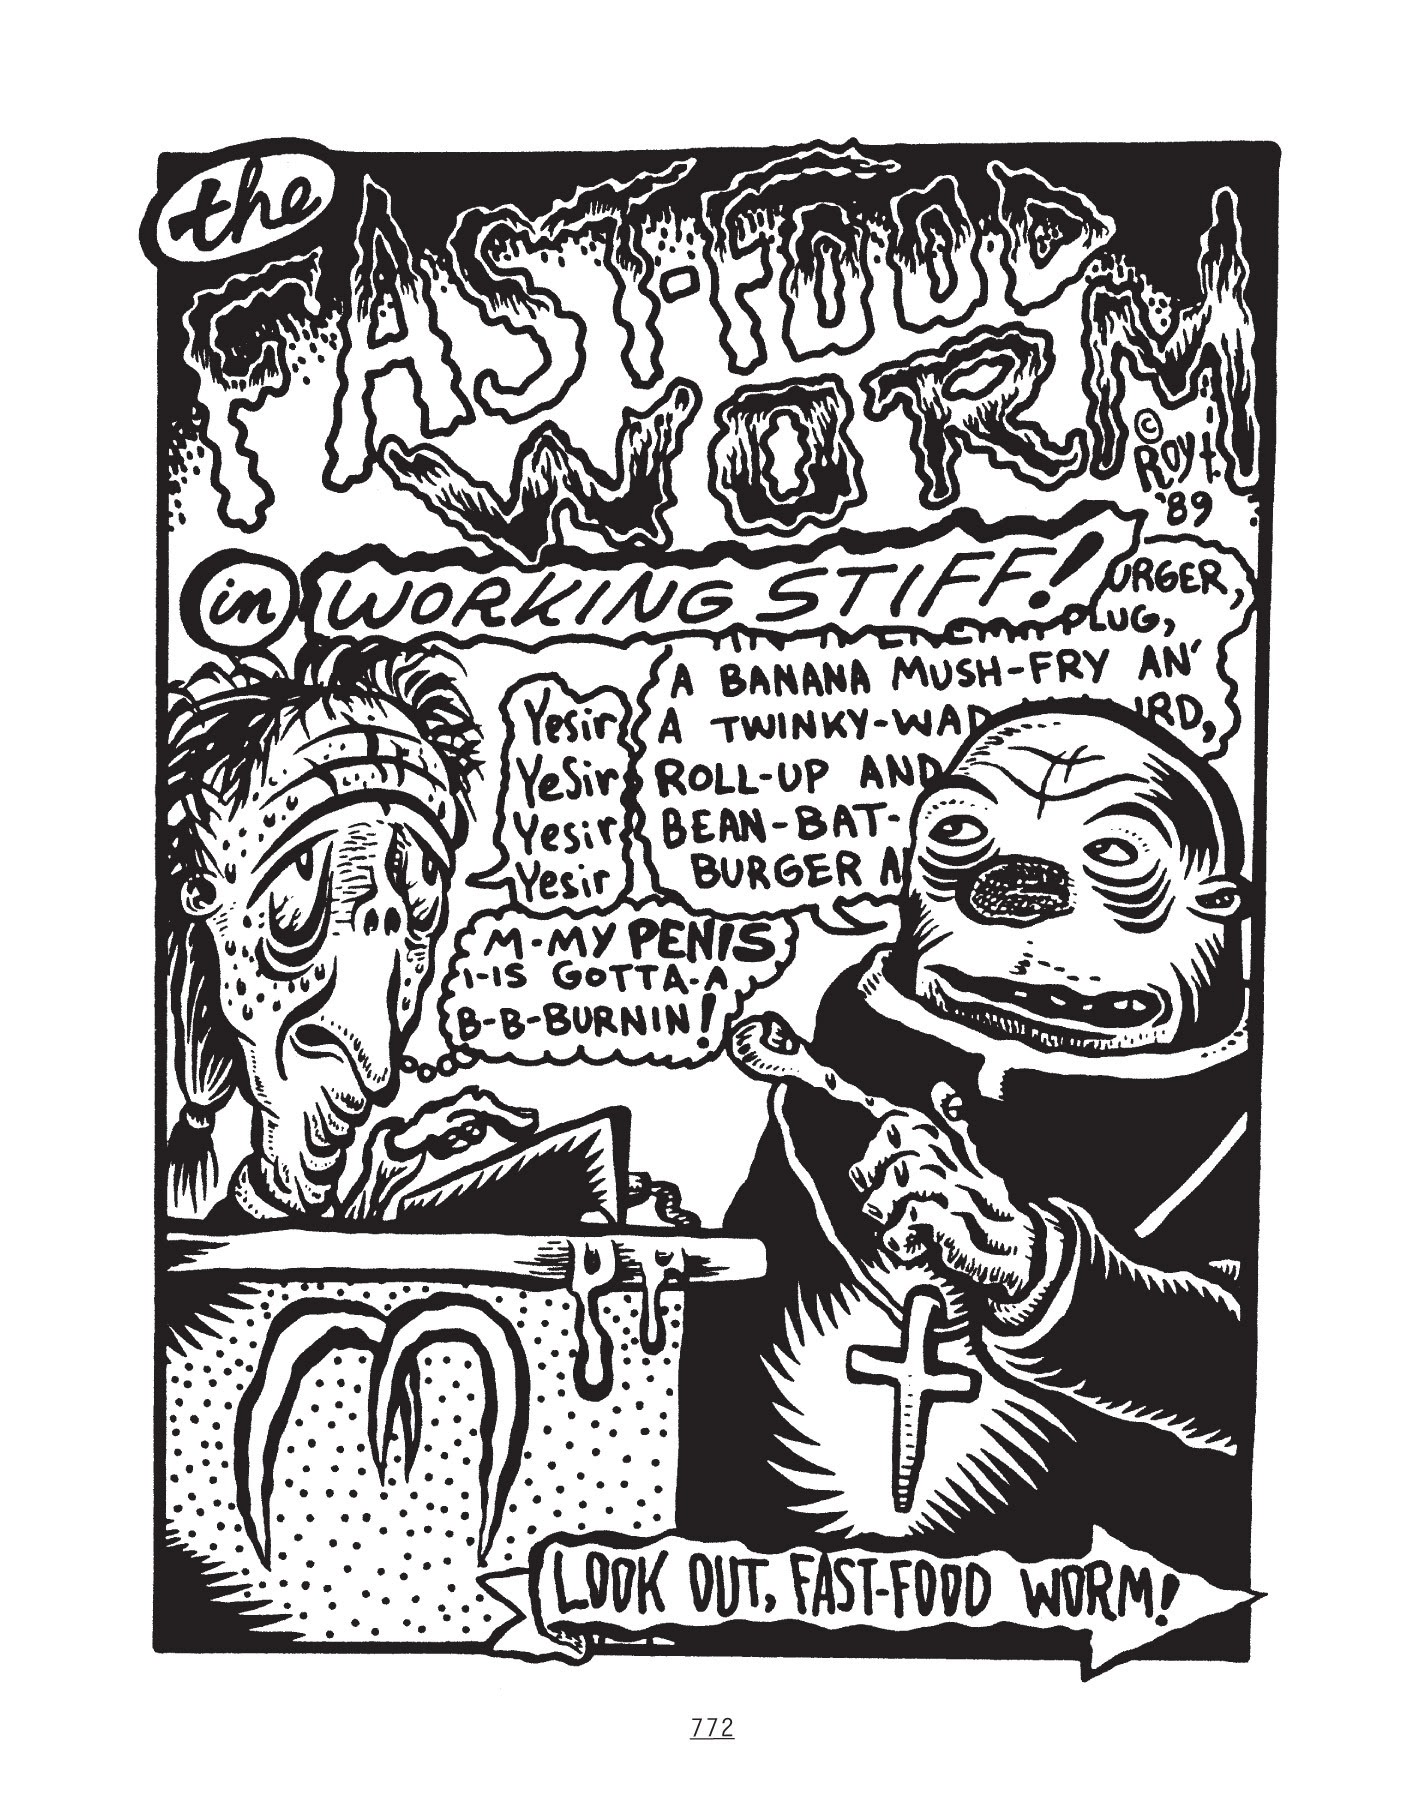 the
FAST-FOOD
WORM
© ROY T.
'89
in WORKING STIFF!
URGER,
PLUG,
A BANANA MUSH-FRY AN'
A TWINKY-WAD IRD,
ROLL-UP AND
BEAN-BAT-
BURGER A
Yesir
Yesir
Yesir
Yesir
M-MY PENIS
I-IS GOTTA-A
B-B-BURNIN!
LOOK OUT, FAST-FOOD WORM!
772